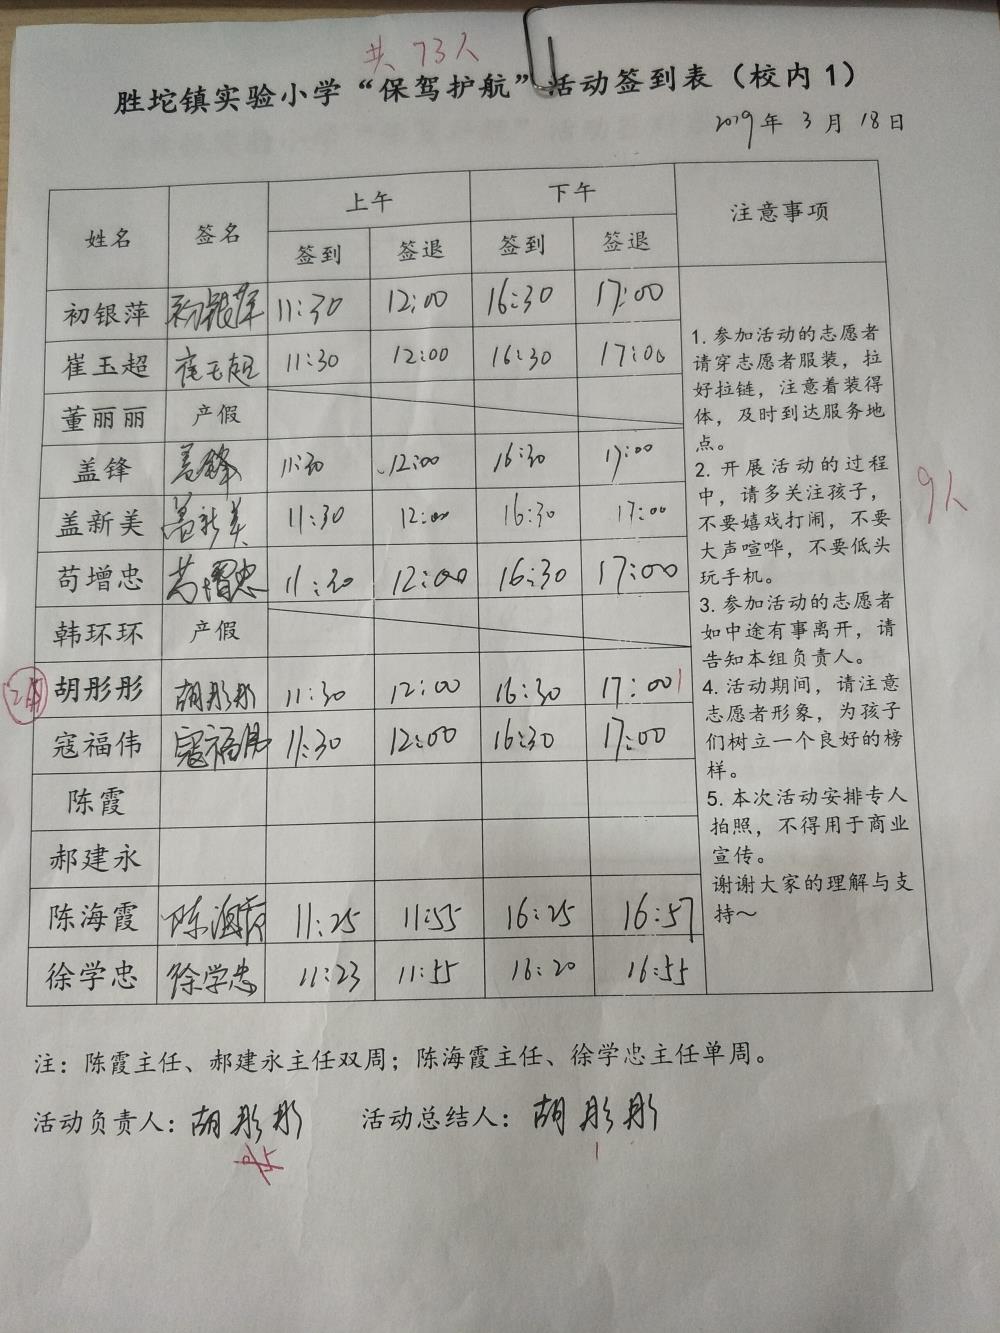 共73人
胜坨镇实验小学“保驾护航”活动签到表（校内1）
2019年 3月 18日
姓名 签名 上午 下午 注意事项
签到 签退 签到 签退
初银萍 初银萍 11:30 12:00 16:30 17:00
崔玉超 崔玉超 11:30 12:00 16:30 17:00
董丽丽 产假
盖锋 盖锋 11:30 12:00 16:30 17:00
盖新美 盖新美 11:30 12:00 16:30 17:00
苟增忠 苟增忠 11:30 12:00 16:30 17:00
韩环环 产假
胡彤彤 胡彤彤 11:30 12:00 16:30 17:00
寇福伟 寇福伟 11:30 12:00 16:30 17:00
陈霞
郝建永
陈海霞 陈海霞 11:25 11:55 16:25 16:57
徐学忠 徐学忠 11:23 11:55 16:20 16:55
1. 参加活动的志愿者
请穿志愿者服装，拉
好拉链，注意着装得
体，及时到达服务地
点。
2. 开展活动的过程
中，请多关注孩子，
不要嬉戏打闹，不要
大声喧哗，不要低头
玩手机。
3. 参加活动的志愿者
如中途有事离开，请
告知本组负责人。
4. 活动期间，请注意
志愿者形象，为孩子
们树立一个良好的榜
样。
5. 本次活动安排专人
拍照，不得用于商业
宣传。
谢谢大家的理解与支
持～
9人
注：陈霞主任、郝建永主任双周；陈海霞主任、徐学忠主任单周。
活动负责人：胡彤彤 活动总结人：胡彤彤